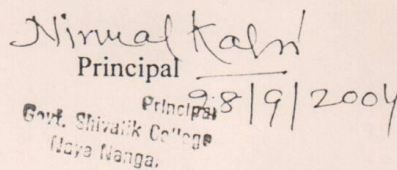 Nirmal Kalsi
Principal
28/9/2004
Principal
Govt. Shivalik College
Naya Nangal